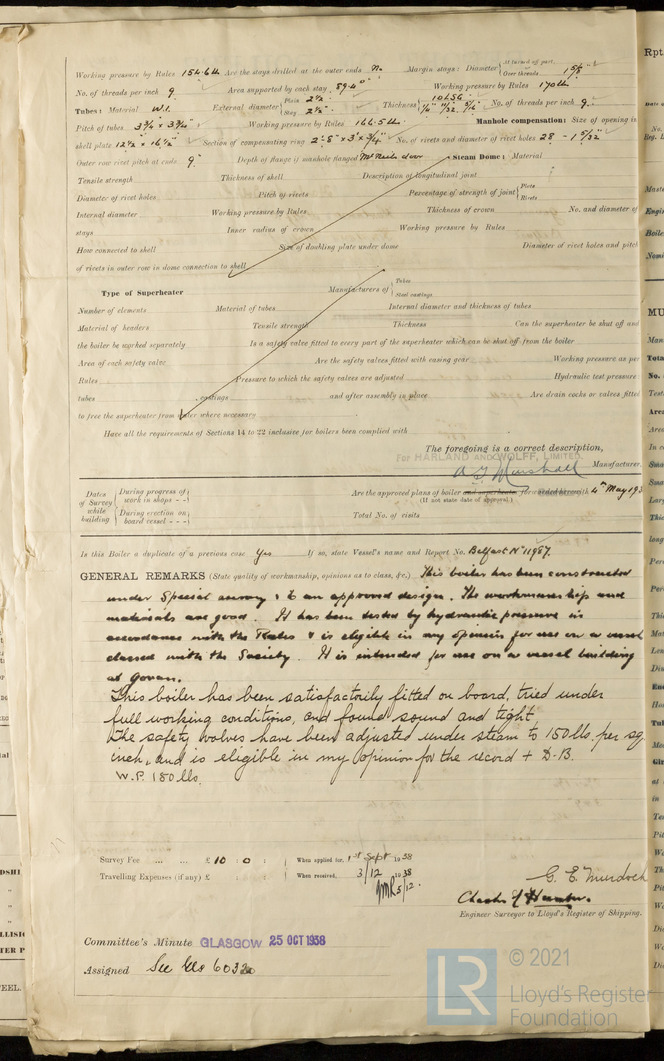 Working pressure by Rules 154.6 lb Are the stays drilled at the outer ends No. Margin stays: Diameter { At turned off part, Over threads 1 5/8"
No. of threads per inch 9. Area supported by each stay 89.4 □" Working pressure by Rules 170 lb
Tubes: Material W.I. External diameter { Plain 2 1/2" Stay 2 1/2" Thickness { 10 LSG 1/4" 11/32 5/16 No. of threads per inch 9.
Pitch of tubes 3 3/4" x 3 3/4" Working pressure by Rules 166.5 lb. Manhole compensation: Size of opening in
shell plate 12 1/2" x 16 1/2" Section of compensating ring 2'-8" x 3' x 3/4" No. of rivets and diameter of rivet holes 28 - 1 5/32"
Outer row rivet pitch at ends 9" Depth of flange if manhole flanged door Steam Dome: Material
Tensile strength Thickness of shell Description of longitudinal joint
Diameter of rivet holes Pitch of rivets Percentage of strength of joint { Plate Rivets
Internal diameter Working pressure by Rules Thickness of crown No. and diameter of
stays Inner radius of crown Working pressure by Rules
How connected to shell Size of doubling plate under dome Diameter of rivet holes and pitch
of rivets in outer row in dome connection to shell
Type of Superheater Manufacturers of { Tubes Steel castings
Number of elements Material of tubes Internal diameter and thickness of tubes
Material of headers Tensile strength Thickness Can the superheater be shut off and
the boiler be worked separately Is a safety valve fitted to every part of the superheater which can be shut off from the boiler
Area of each safety valve Are the safety valves fitted with easing gear Working pressure as per
Rules Pressure to which the safety valves are adjusted Hydraulic test pressure
tubes castings and after assembly in place Are drain cocks or valves fitted
to free the superheater from water where necessary
Have all the requirements of Sections 14 to 22 inclusive for boilers been complied with
The foregoing is a correct description,
For HARLAND AND WOLFF, LIMITED.
Marshall Manufacturer.
Dates of Survey while building { During progress of work in shops - - During erection on board vessel - - -
Are the approved plans of boiler and superheater forwarded herewith 4th May 193
(If not state date of approval.)
Total No. of visits
Is this Boiler a duplicate of a previous case Yes If so, state Vessel's name and Report No. Belfast No 11987.
GENERAL REMARKS (State quality of workmanship, opinions as to class, &c.) This boiler has been constructed
under Special survey & to an approved design. The workmanship and
materials are good. It has been tested by hydraulic pressure in
accordance with the Rules & is eligible in my opinion for use on a vessel
classed with the Society. It is intended for use on a vessel building
at Govan.
This boiler has been satisfactorily fitted on board, tried under
full working conditions, and found sound and tight.
The safety valves have been adjusted under steam to 150 lbs. per sq.
inch, and is eligible in my opinion for the record + D.B.
W.P. 150 lbs.
Survey Fee ... ... £ 10 : 0 : When applied for, 1st Sept 1938
Travelling Expenses (if any) £ : : When received, 3/12 1938
5/12.
G. E. Murdoch
Charles J Hunter.
Engineer Surveyor to Lloyd's Register of Shipping.
Committee's Minute GLASGOW 25 OCT 1938
Assigned See Gls 60320
LR © 2021
Lloyd's Register
Foundation
Rpt.